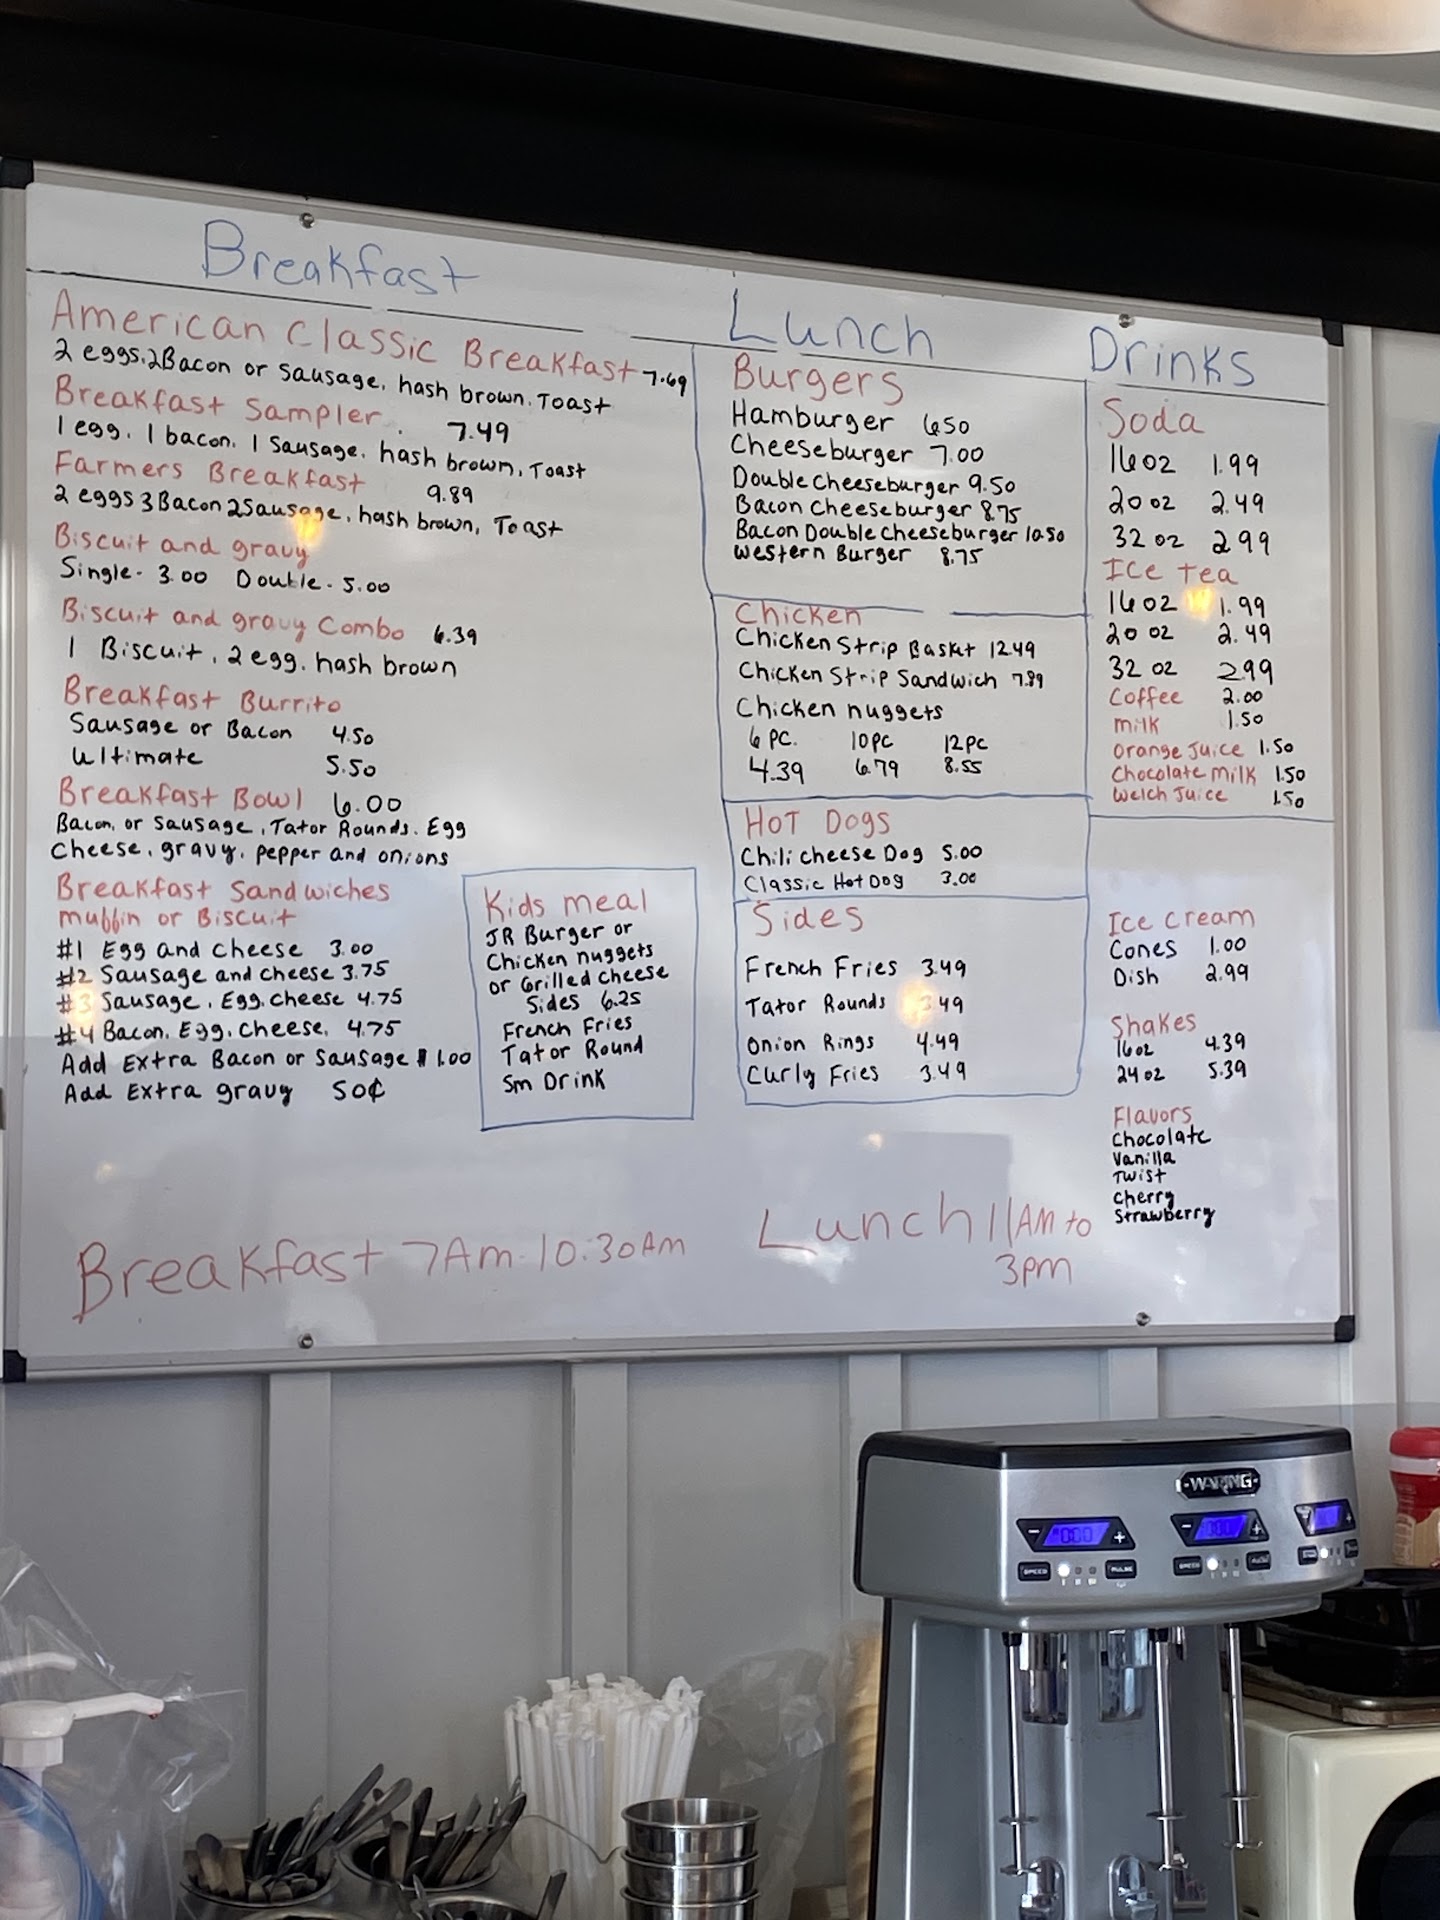 Breakfast
American Classic Breakfast 7.69
2 eggs, 2 Bacon or Sausage, hash brown, Toast
Breakfast Sampler 7.49
1 egg, 1 bacon, 1 Sausage, hash brown, Toast
Farmers Breakfast 9.89
2 eggs 3 Bacon 2 Sausage, hash brown, Toast
Biscuit and gravy
Single - 3.00 Double - 5.00
Biscuit and gravy Combo 6.39
1 Biscuit, 2 egg, hash brown
Breakfast Burrito
Sausage or Bacon 4.50
Ultimate 5.50
Breakfast Bowl 6.00
Bacon, or Sausage, Tator Rounds, Egg
Cheese, gravy, pepper and onions
Breakfast Sandwiches
muffin or Biscuit
#1 Egg and cheese 3.00
#2 Sausage and cheese 3.75
#3 Sausage, Egg, cheese 4.75
#4 Bacon, Egg, cheese, 4.75
Add Extra Bacon or Sausage $1.00
Add Extra gravy 50¢
Kids meal
JR Burger or
Chicken nuggets
or Grilled cheese
Sides 6.25
French Fries
Tator Round
Sm Drink
Breakfast 7Am-10:30AM
Lunch
Burgers
Hamburger 6.50
Cheeseburger 7.00
Double Cheeseburger 9.50
Bacon Cheeseburger 8.75
Bacon Double Cheeseburger 10.50
Western Burger 8.75
Chicken
Chicken Strip Basket 12.49
Chicken Strip Sandwich 7.89
Chicken nuggets
6 PC. 10 PC 12 PC
4.39 6.79 8.55
HOT DOGS
Chili cheese Dog 5.00
Classic Hot Dog 3.00
Sides
French Fries 3.49
Tator Rounds 3.49
Onion Rings 4.49
Curly Fries 3.49
Lunch 11AM to
3pm
Drinks
Soda
16 oz 1.99
20 oz 2.49
32 oz 2.99
Ice Tea
16 oz 1.99
20 oz 2.49
32 oz 2.99
Coffee 2.00
milk 1.50
Orange Juice 1.50
Chocolate Milk 1.50
Welch Juice 1.50
Ice Cream
Cones 1.00
Dish 2.99
Shakes
16 oz 4.39
24 oz 5.39
Flavors
Chocolate
Vanilla
Twist
Cherry
Strawberry
WARING